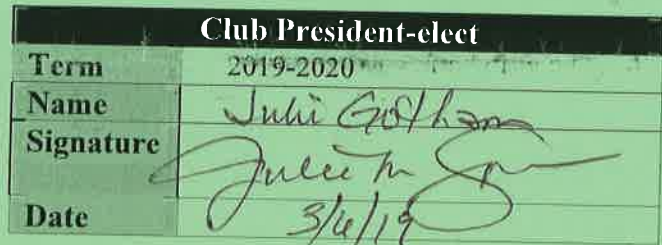 Club President-elect
Term 2019-2020
Name Juli Gotham
Signature Julie M
Date 3/6/19